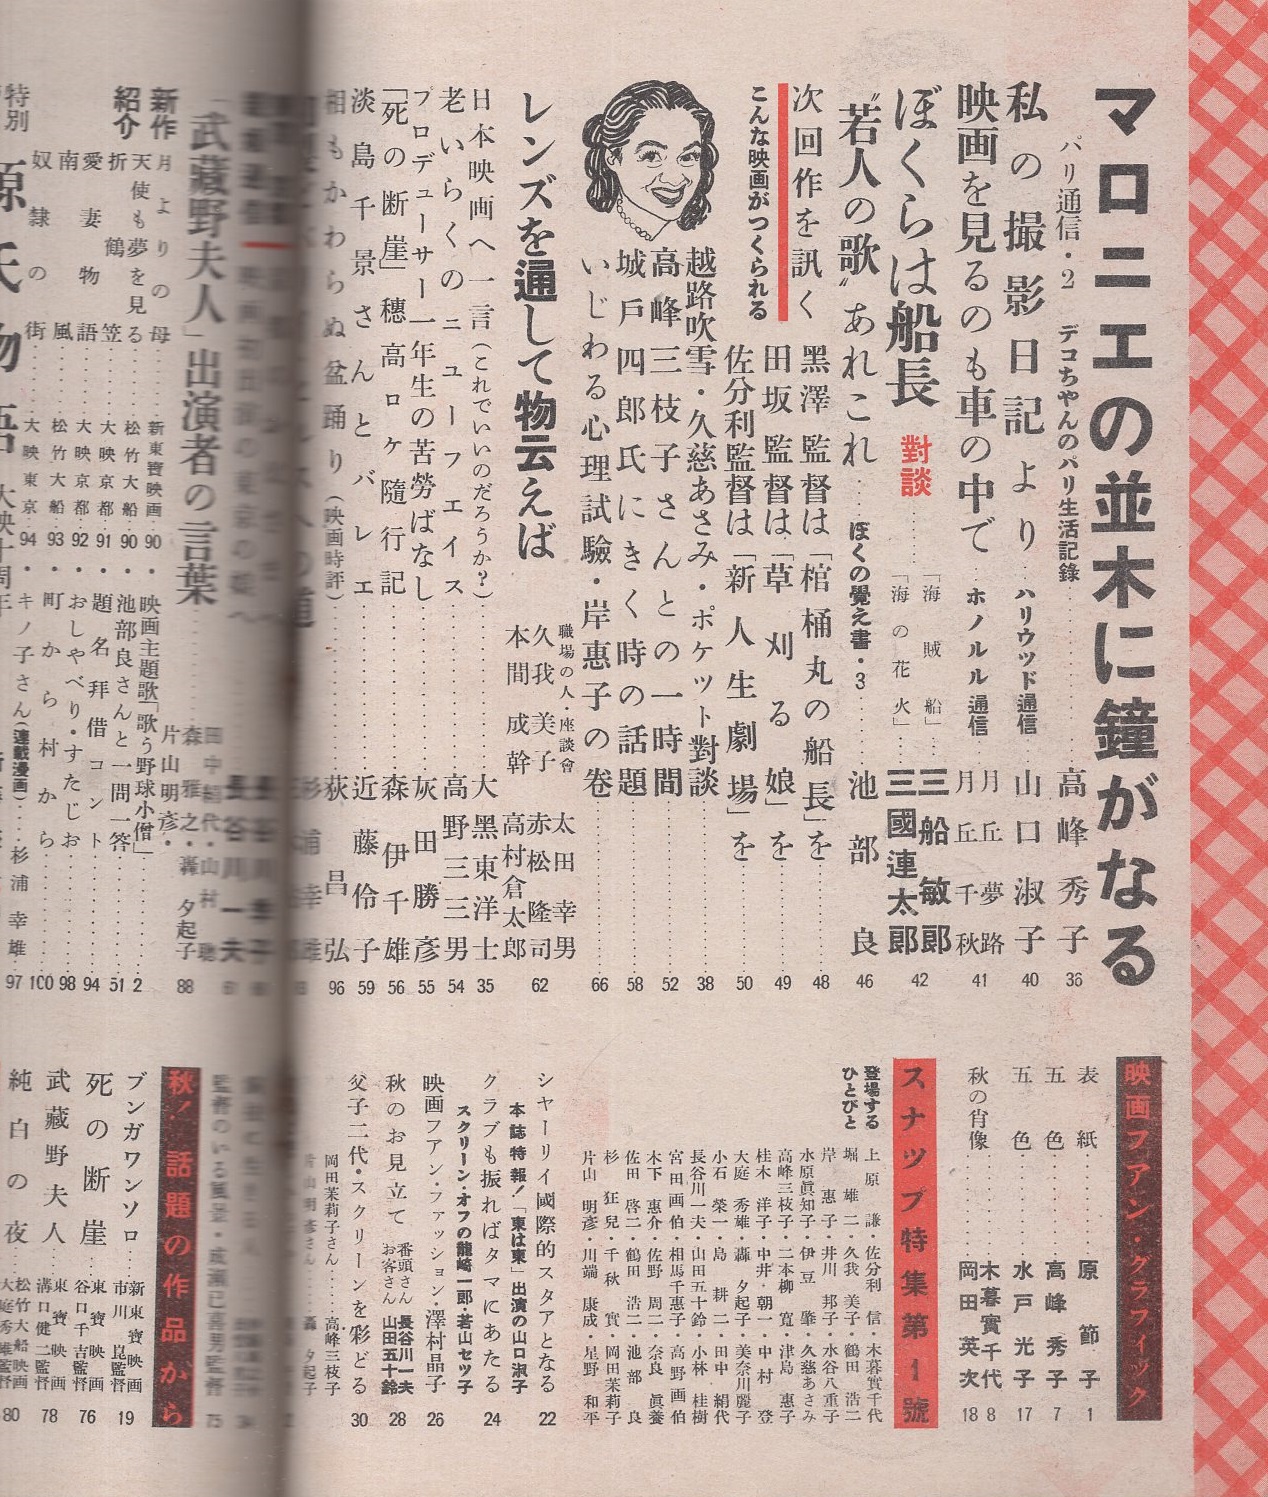 マロニエの並木に鐘がなる
パリ通信・2 デコちゃんのパリ生活記錄 高峰秀子 36
私の撮影日記より ハリウッド通信 山口淑子 40
映画を見るのも車の中で ホノルル通信 月丘夢路 月丘千秋 41
ぼくらは船長 對談 「海賊船」三船敏郎 「海の花火」三國連太郎 42
〝若人の歌〟あれこれ ぼくの覺え書・3 池部良 46
次回作を訊く
こんな映画がつくられる
黑澤監督は「棺桶丸の船長」を 48
田坂監督は「草刈る娘」を 49
佐分利監督は「新人生劇場」を 50
越路吹雪・久慈あさみ・ポケット對談 38
高峰三枝子さんとの一時間 52
城戸四郎氏にきく時の話題 58
いじわる心理試驗・岸惠子の巻 66
レンズを通して物云えば
職場の人・座談會
太田幸男
赤松隆司
久我美子
高村倉太郎
本間成幹
62
日本映画へ一言(これでいいのだろうか?) 大黑東洋士 35
老いらくのニューフェイス 高野三三男 54
プロデューサー一年生の苦勞ばなし 灰田勝彦 55
「死の断崖」穗高ロケ隨行記 森伊千雄 56
淡島千景さんとバレエ 近藤伶子 59
相もかわらぬ盆踊り(映画時評) 荻昌弘 96
「武藏野夫人」出演者の言葉
田中絹代・山村聰
森雅之・轟夕起子
片山明彦・
88
新作紹介
月よりの母 新東寶映画 90
天使も夢を見る 松竹大船 90
折鶴笠 大映京都 91
愛妻物語 大映京都 92
南風 松竹大船 93
奴隷の街 大映東京 94
映画主題歌「歌う野球小僧」 2
池部良さんと一問一答 51
題名拜借コント 94
おしゃべり・すたじお 98
町から村から 100
キノ子さん(連載漫画) 杉浦幸雄 97
特別
映画フアン・グラフィック
表紙 原節子 1
五色 高峰秀子 7
五色 水戸光子 17
秋の肖像 木暮實千代 8
岡田英次 18
スナップ特集第1號
登場するひとびと
上原謙・佐分利信・木暮實千代
堀雄二・久我美子・鶴田浩二
岸惠子・井川邦子・水谷八重子
水原眞知子・伊豆肇・久慈あさみ
高峰三枝子・二本柳寛・津島惠子
桂木洋子・中井・朝一・中村登
大庭秀雄・轟夕起子・美奈川麗子
小石榮一・島耕二・田中絹代
長谷川一夫・山田五十鈴・小林桂樹
宮田画伯・相馬千惠子・高野画伯
木下惠介・佐野周二・奈良眞養
佐田啓二・鶴田浩二・池部良
杉狂兒・千秋實・岡田茉莉子
片山明彦・川端康成・星野和平
シャーリイ國際的スタアとなる 22
本誌特報!「東は東」出演の山口淑子
クラブも振ればタマにあたる 24
スクリーン・オフの龍崎一郎・若山セツ子
映画フアン・ファッション・澤村晶子 26
秋のお見立て 番頭さん 長谷川一夫 お客さん 山田五十鈴 28
父子二代・スクリーンを彩どる 30
岡田茉莉子さん 高峰三枝子
片山明彦さん 轟夕起子
監督のいる風景・成瀨巳喜男監督 75
秋!話題の作品から
ブンガワンソロ 新東寶映画 市川崑監督 19
死の断崖 東寶映画 谷口千吉監督 76
武藏野夫人 東寶映画 溝口健二監督 78
純白の夜 松竹大船映画 大庭秀雄監督 80